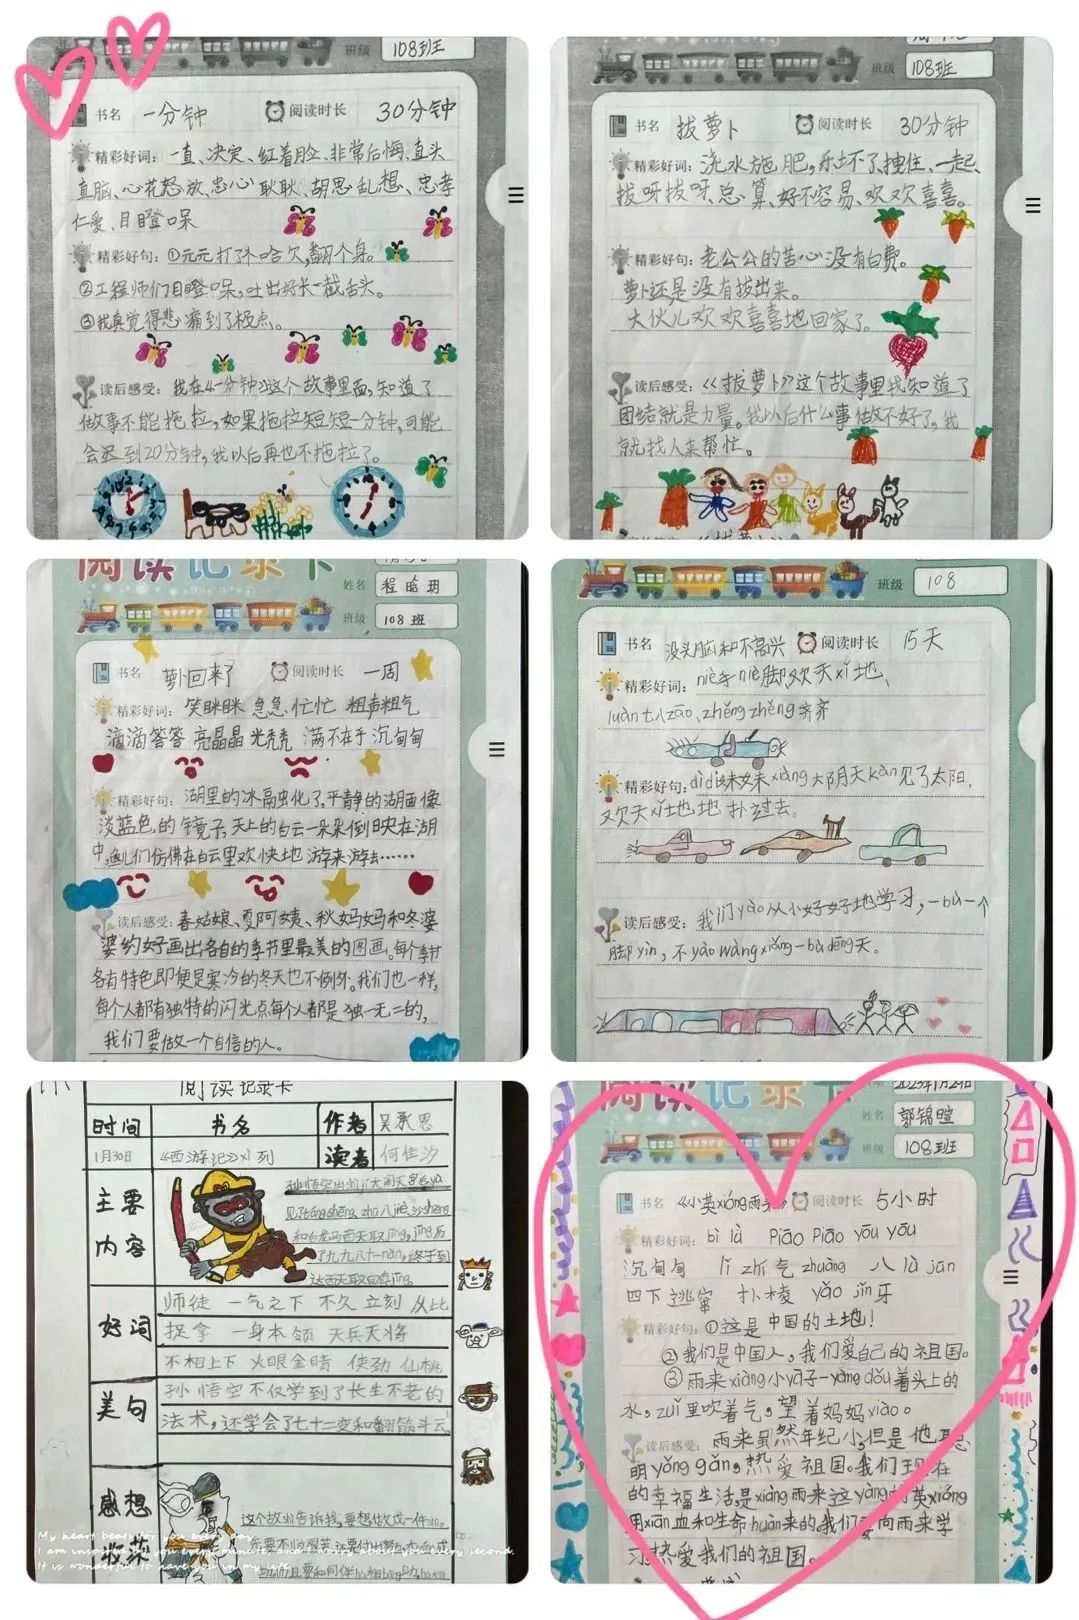 班级 108班
书名 一分钟 阅读时长 30分钟
精彩好词: 一直、决定、红着脸、非常后悔、直头
直脑、心花怒放、忠心耿耿、胡思乱想、忠孝
仁爱、目瞪口呆
精彩好句: ①元元打了个哈欠,翻个身。
②工程师们目瞪口呆,吐出好长一截舌头。
③我真觉得悲痛到了极点。
读后感受: 我在《一分钟》这个故事里面,知道了
做事不能拖拉,如果拖拉短短一分钟,可能
会迟到20分钟,我以后再也不拖拉了。
班级 108班
书名 拔萝卜 阅读时长 30分钟
精彩好词: 浇水施肥,乐坏了,拽住、一起、
拔呀拔呀、总算、好不容易、欢欢喜喜。
精彩好句: 老公公的苦心没有白费。
萝卜还是没有拔出来。
大伙儿欢欢喜喜地回家了。
读后感受: 《拔萝卜》这个故事里我知道了
团结就是力量。我以后什么事做不好了,我
就找人来帮忙。
阅读记录卡
姓名 程晗玥
班级 108班
书名 萝卜回来了 阅读时长 一周
精彩好词: 笑眯眯 急急忙忙 粗声粗气
滴滴答答 亮晶晶 光秃秃 满不在乎 沉甸甸
精彩好句: 湖里的冰融化了,平静的湖面像
淡蓝色的镜子,天上的白云一朵朵倒映在湖
中,鱼儿们仿佛在白云里欢快地游来游去……
读后感受: 春姑娘、夏阿姨、秋妈妈和冬婆
婆约好画出各自的季节里最美的图画。每个季节
各有特色即便是寒冷的冬天也不例外。我们也一样,
每个人都有独特的闪光点每个人都是独一无二的,
我们要做一个自信的人。
班级 108
书名 没头脑和不高兴 阅读时长 15天
精彩好词: niè手niè脚欢天xǐ地、
luàn七八zāo、zhěng zhěng齐齐
精彩好句: dìdi妹妹xiàng大阴天kàn见了太阳,
欢天xǐ地地扑过去。
读后感受: 我们yào从小好好地学习,一bù一个
脚yìn,不yào wàng xiǎng一bù dēng天。
阅读记录卡
时间 书名 作者 吴承恩
1月30日 《西游记》系列 读者 何佳汐
主要内容
好词 师徒 一气之下 不久 立刻 从此
捉拿 一身本领 天兵天将
不相上下 火眼金睛 使劲 仙桃
美句 孙悟空不仅学到了长生不老的
法术,还学会了七十二变和翻筋斗云
感想收获
My heart beats for you every day.
It is wonderful to have you in my life.
阅读记录卡
姓名 郭锦暄
班级 108班
书名 《小英xióng雨来》 阅读时长 5小时
精彩好词: bì lǜ piāo piāo yōu yōu
沉甸甸 lǐ zhí气zhuàng 八lù jūn
四下逃窜 扑棱 yǎo jǐn牙
精彩好句: ①这是中国的土地!
②我们是中国人,我们爱自己的祖国。
③雨来xiàng小yā子一yàng dǒu着头上的
水,zuǐ里吹着气,望着妈妈xiào。
读后感受: 雨来虽然年纪小,但是他聪
明yǒng gǎn,热爱祖国。我们现在
的幸福生活,是xiàng雨来这yàng的英xióng
用xiān血和生命huàn来的,我们要向雨来学
习,热爱我们的祖国。